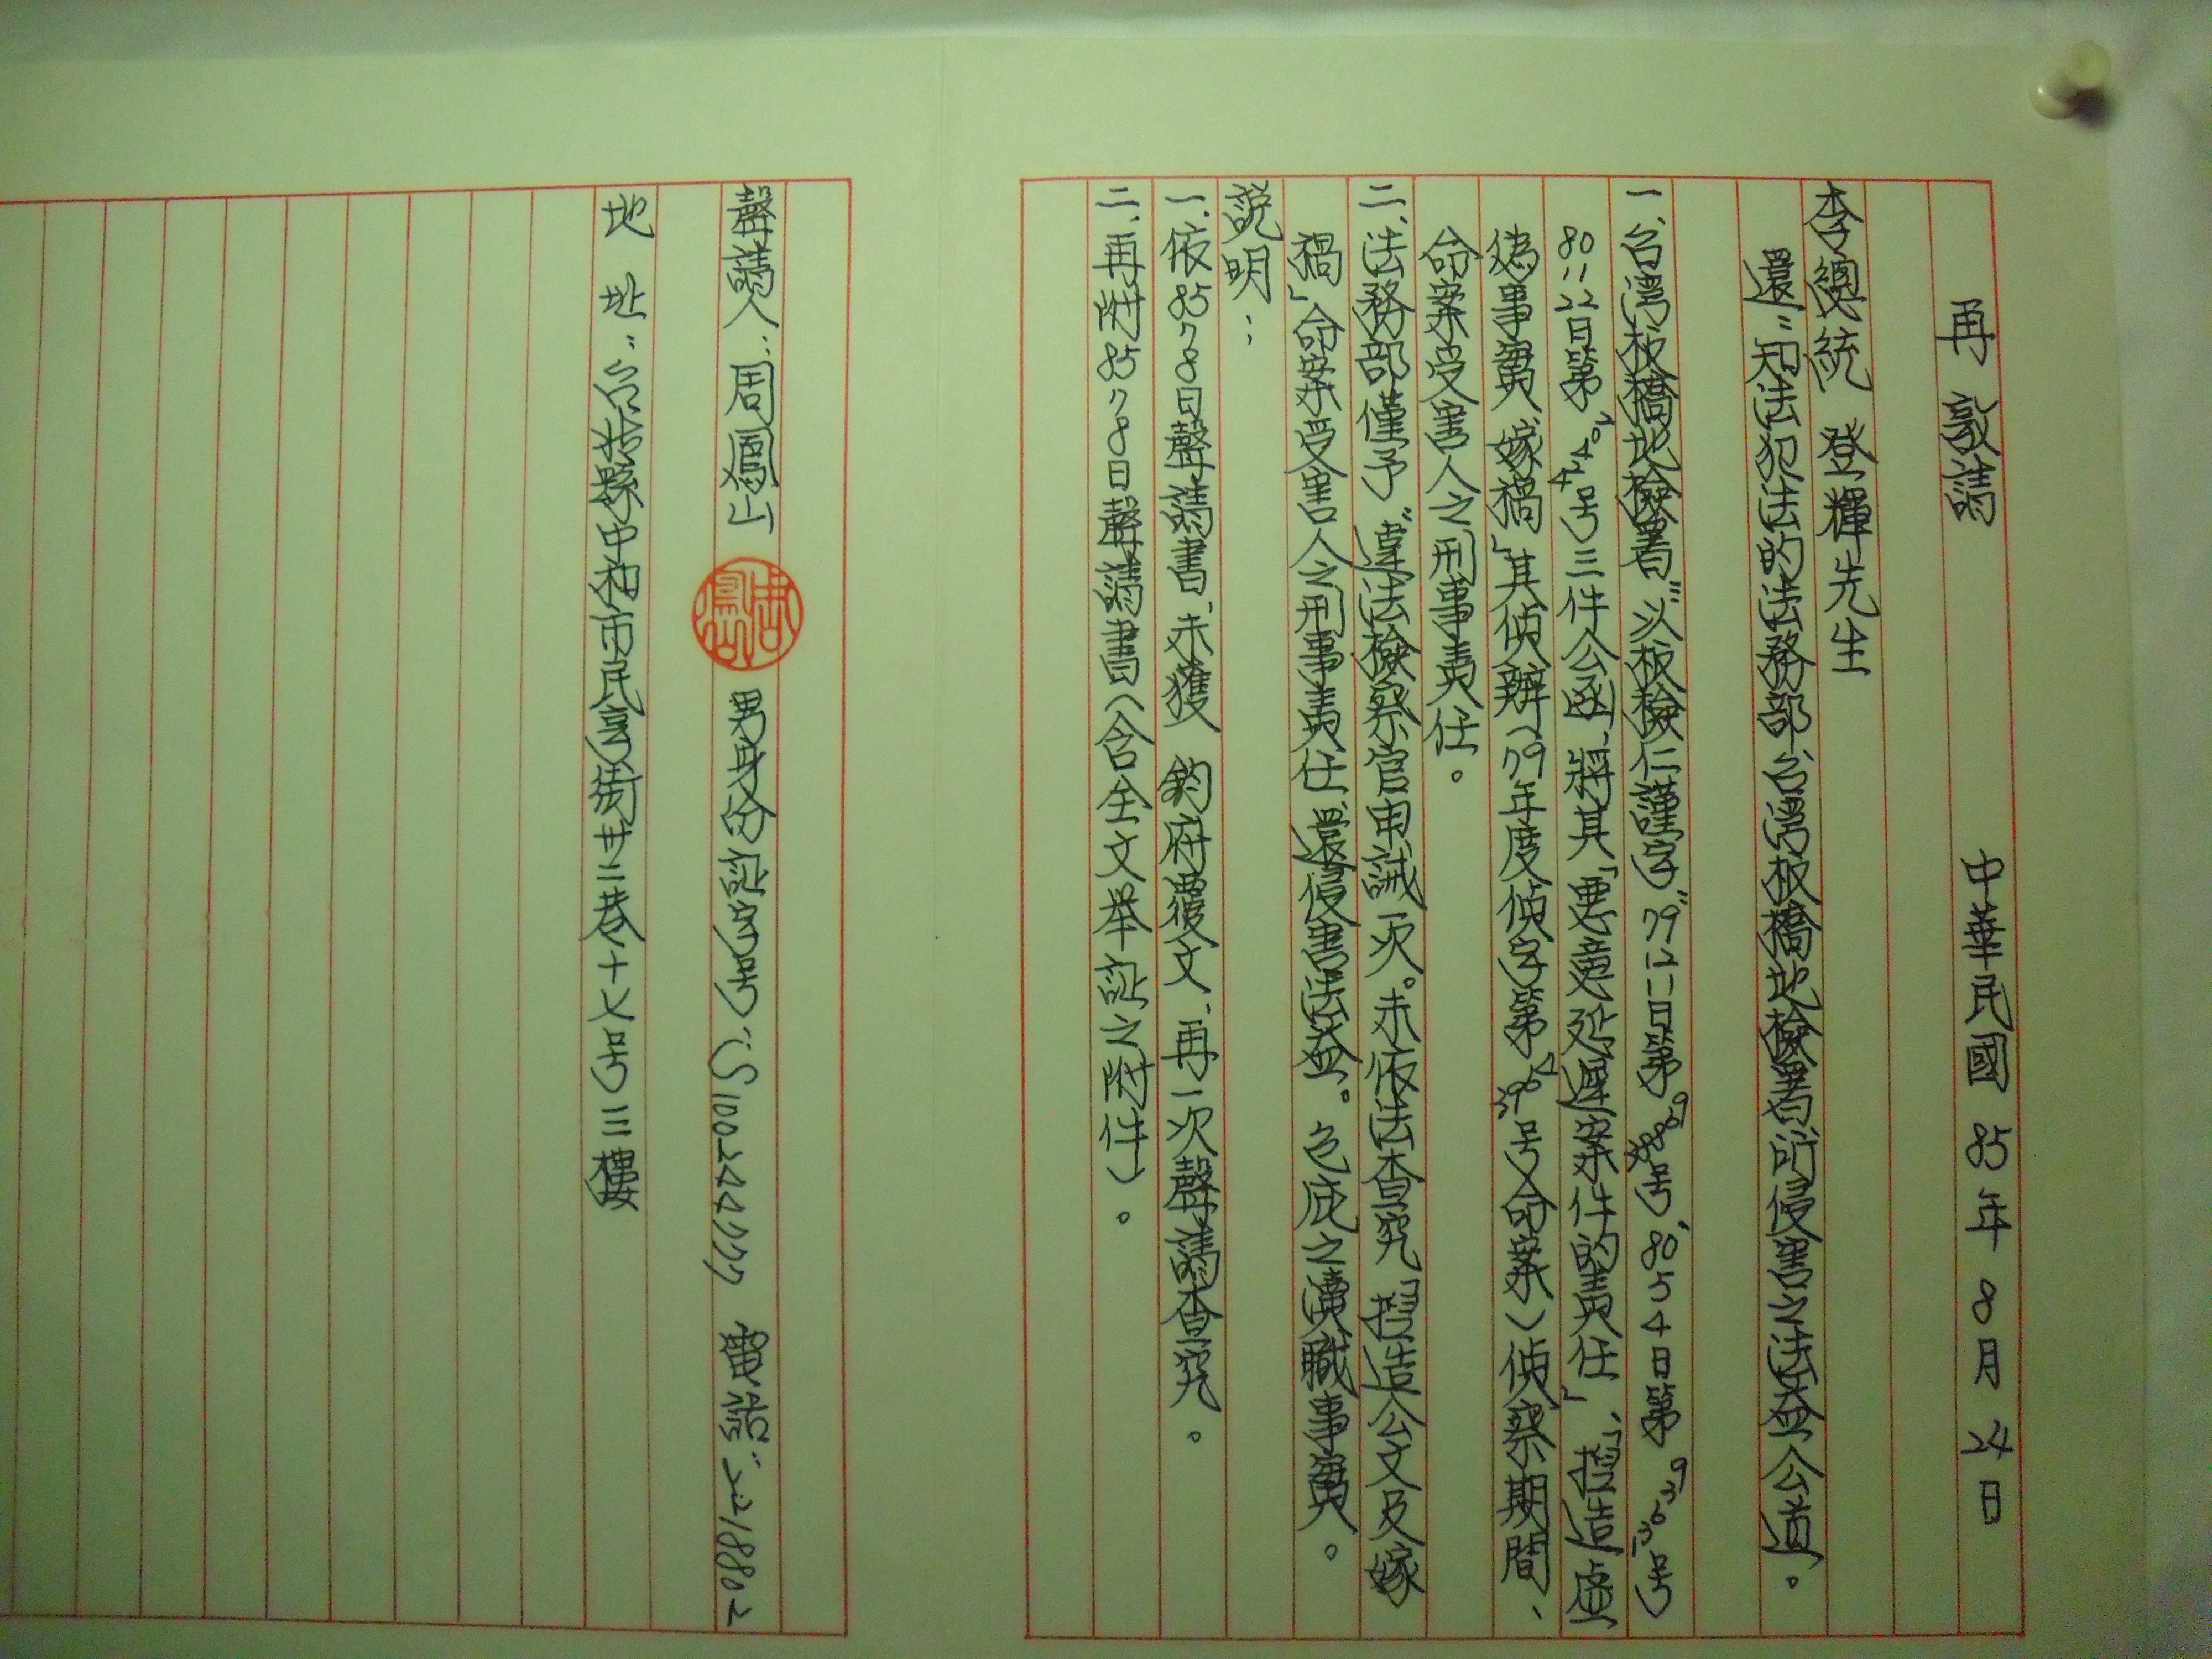 再敦請 中華民國85年8月24日
李總統 登輝先生
還：知法犯法的法務部台灣板橋地檢署，所侵害之法益公道。
一、台灣板橋地檢署〝以板檢仁謹字〞79 12 11日第 號、80 5 4日第 號
80 11 22日第 號三件公函、將其「惡意延遲案件的責任」、「捏造虛
偽事實、嫁禍」其偵辦（79年度偵字第 號命案）偵察期間、
命案受害人之刑事責任。
二、法務部僅予〝違法檢察官申誡一次。未依法查究「捏造公文及嫁
禍」命案受害人之刑事責任、還侵害法益。包庇之瀆職事實。
説明：
一、依85 7 8日聲請書、未獲 鈞府覆文、再一次聲請查究。
二、再附85 7 8日聲請書（含全文举証之附件）。
聲請人：周鳳山 男身份証字号：（S100244777） 電話：2218802
地 址：台北縣中和市民享街卅二巷十七号三樓